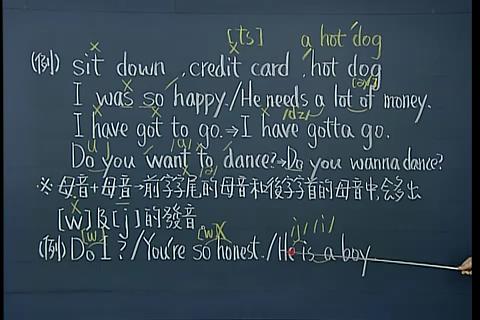 [ts] a hot dog
(例) sit down , credit card , hot dog
I was so happy./He needs a lot of money.
I have got to go.⇒I have gotta go.
Do you want to dance?→Do you wanna dance?
※ 母音+母音→前字字尾的母音和後字字首的母音中,會多出
[w]及[j]的發音
[w] [w]
(例) Do I ?/You're so honest./He is a boy